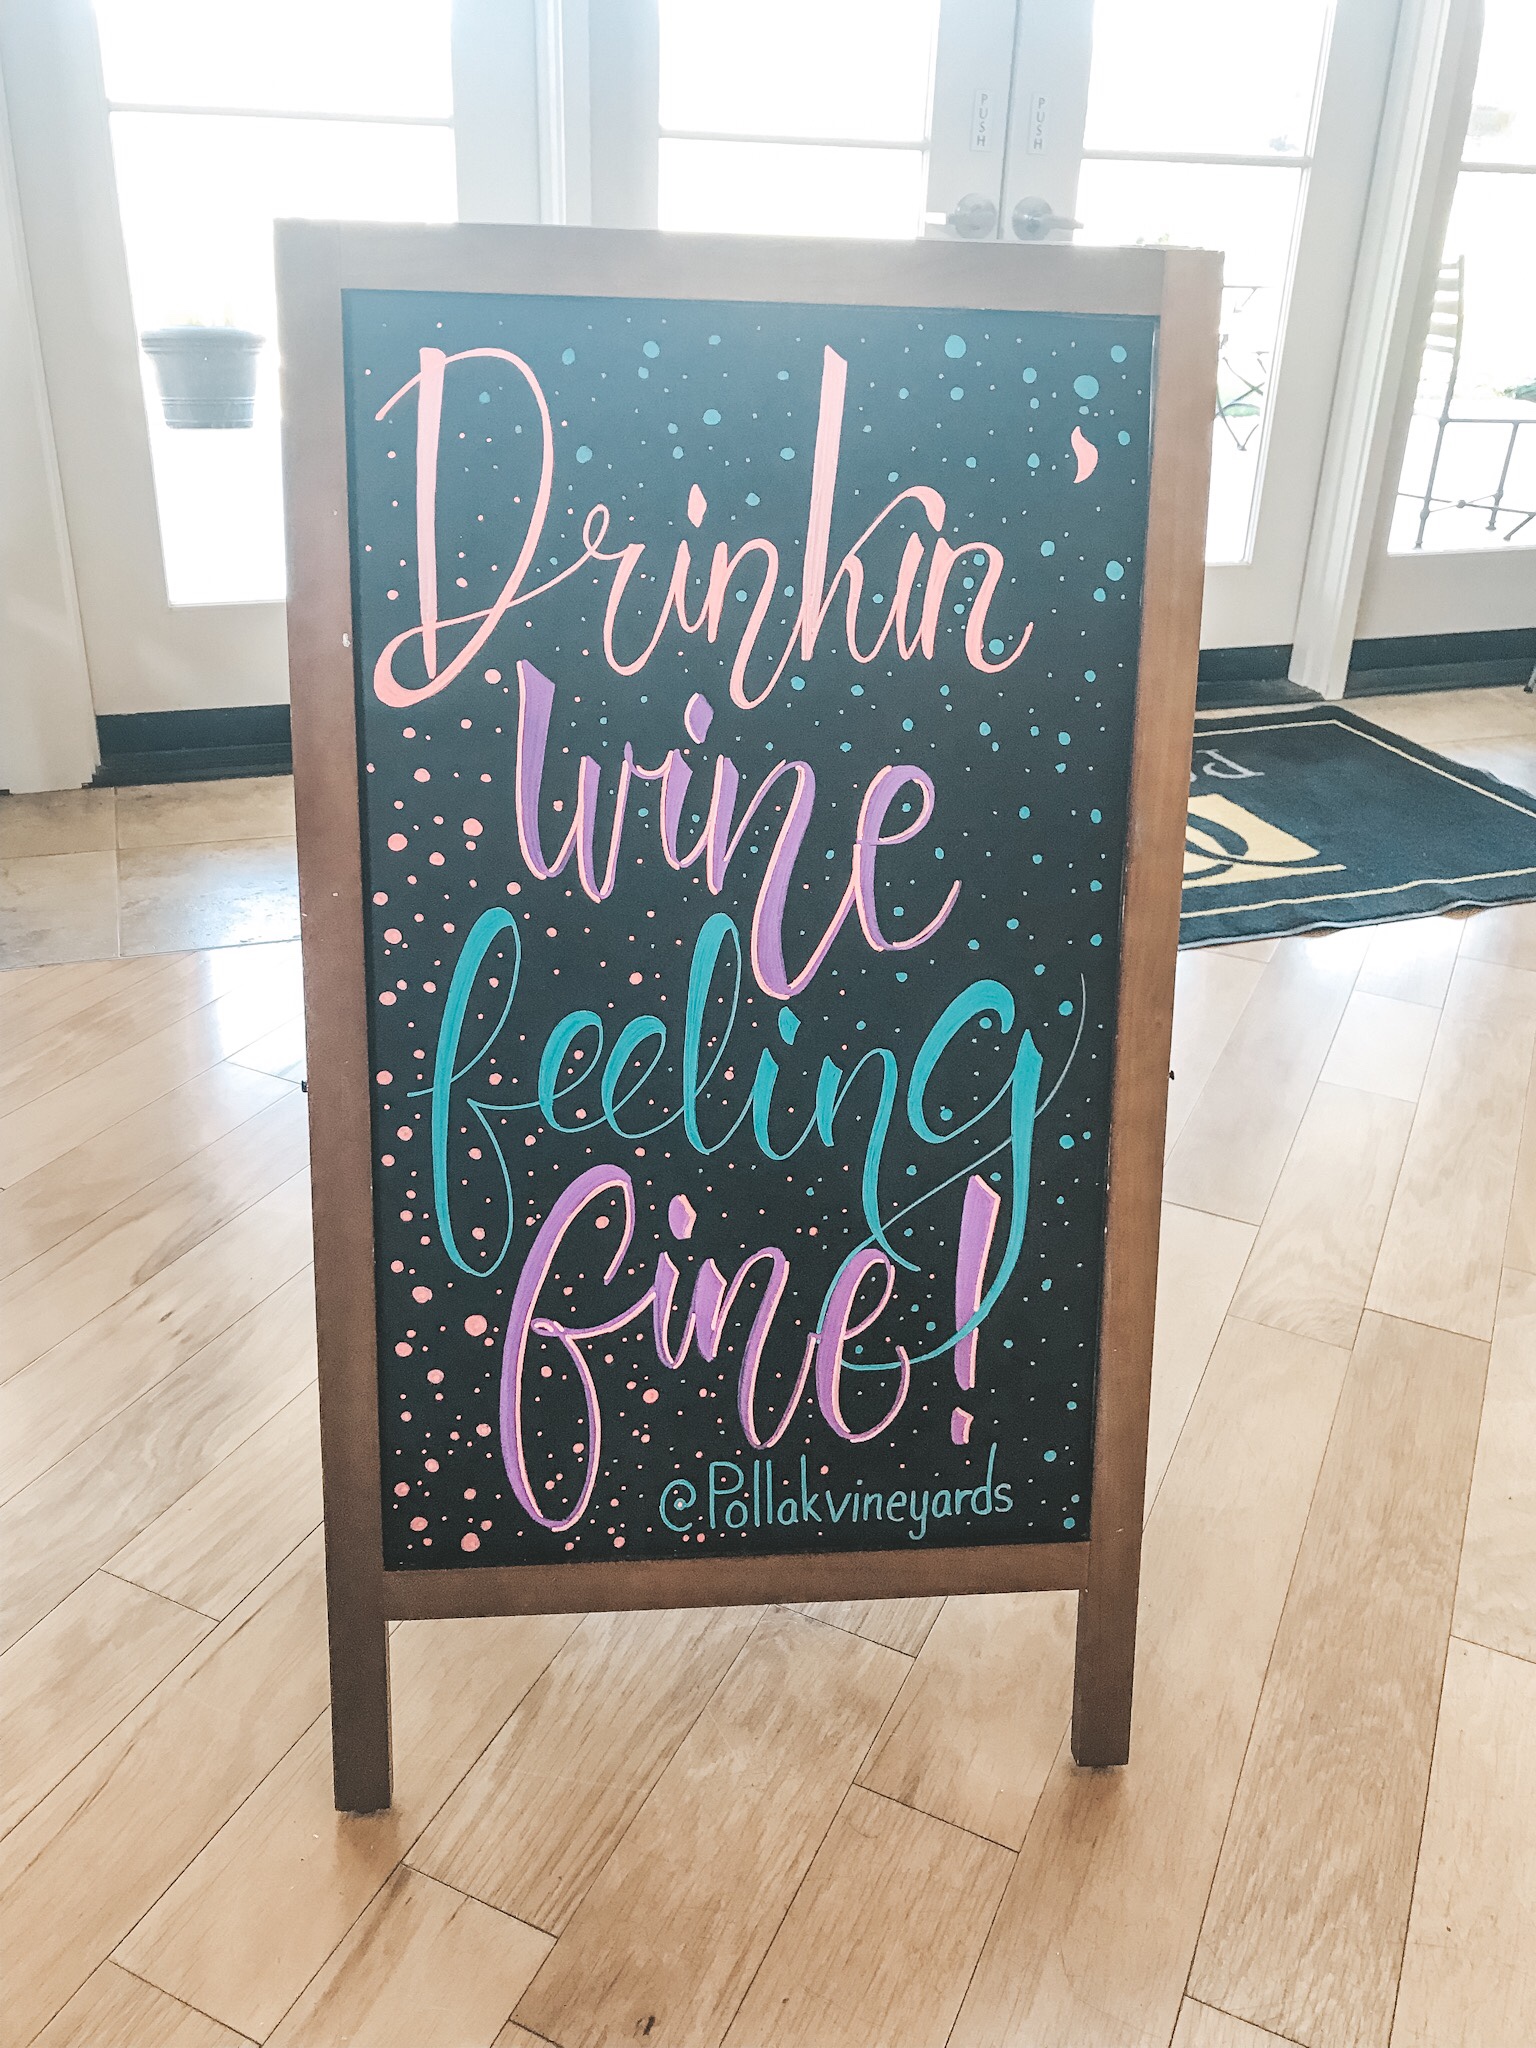 PUSH
PUSH
Drinkin'
wine
feeling
fine!
@Pollakvineyards